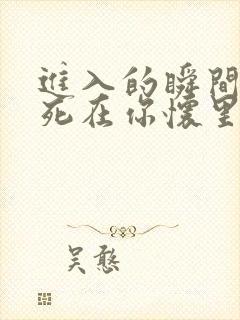 進入的瞬間
死在你懷里
吴憨